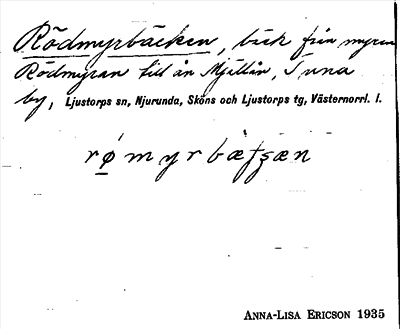 Rödmyrbäcken, bäck från myren
Rödmyran till ån Mjällån, Sunna
by, Ljustorps sn, Njurunda, Sköns och Ljustorps tg, Västernorrl. l.
rømyrbætʂæn
ANNA-LISA ERICSON 1935